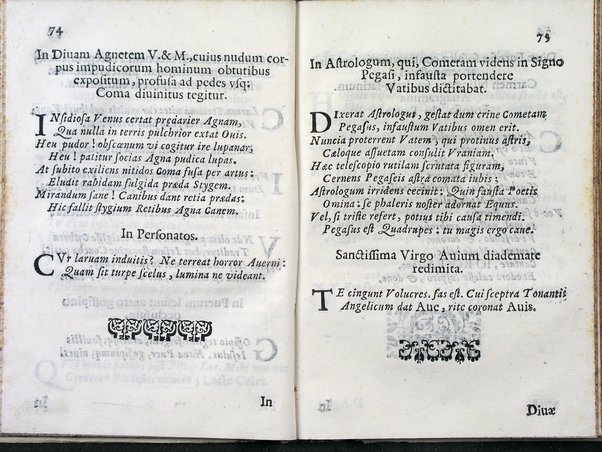 74
In Diuam Agnetem V. & M., cuius nudum cor-
pus impudicorum hominum obtutibus
expositum, profusa ad pedes vsq;
Coma diuinitus tegitur.
INsidiosa Venus certat prædarier Agnam,
Qua nulla in terris pulchrior extat Ouis.
Heu pudor! obscœnum vi cogitur ire lupanar;
Heu! patitur socias Agna pudica lupas.
At subito exiliens nitidos Coma fusa per artus:
Eludit rabidam fulgida præda Stygem.
Mirandum sane! Canibus dant retia prædas:
Hic fallit stygium Retibus Agna Canem.
In Personatos.
CVr laruam induitis? Ne terreat horror Auerni:
Quam sit turpe scelus, lumina ne videant.
In
75
In Astrologum, qui, Cometam videns in Signo
Pegasi, infausta portendere
Vatibus dictitabat.
DIxerat Astrologus, gestat dum crine Cometam
Pegasus, infaustum Vatibus omen erit.
Nuncia proterrent Vatem, qui protinus astris,
Cæloque assuetam consulit Vraniam.
Hæc telescopio rutilam scrutata figuram,
Cernens Pegaseis astra comata iubis:
Astrologum irridens cecinit: Quin fausta Poetis
Omina: se phaleris noster adornat Equus.
Vel, si triste refert, potius tibi causa timendi.
Pegasus est Quadrupes: tu magis ergo caue.
Sanctissima Virgo Auium diademate
redimita.
TE cingunt Volucres. fas est. Cui sceptra Tonantis
Angelicum dat Auc, rite coronat Auis.
Diuæ